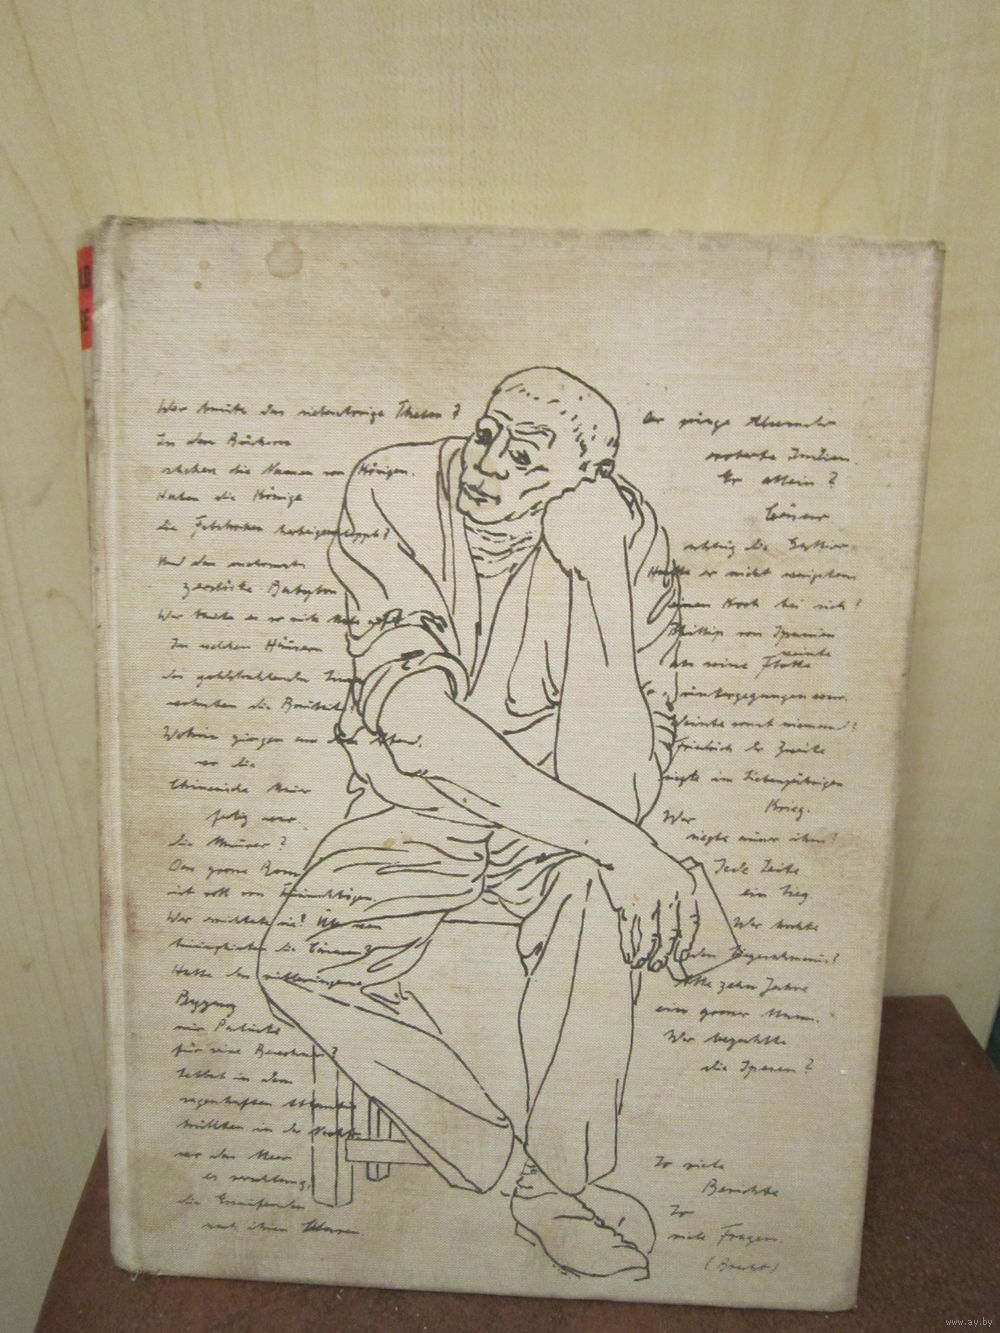 LD
E
Wer baute das siebentorige Theben?
In den Büchern
stehen die Namen von Königen.
Haben die Könige
die Felsbrocken herbeigeschleppt?
Und das mehrmals
zerstörte Babylon
Wer baute es so viele Male auf?
In welchen Häusern
des goldstrahlenden Lima
wohnten die Bauleute?
Wohin gingen an dem Abend,
wo die
Chinesische Mauer
fertig war
die Maurer?
Das grosse Rom
ist voll von Triumphbögen.
Wer errichtete sie? Über wen
triumphierten die Cäsaren?
Hatte das vielbesungene
Byzanz
nur Paläste
für seine Bewohner?
Selbst in dem
sagenhaften Atlantis
brüllten in der Nacht
wo das Meer
es verschlang,
die Ersaufenden
nach ihren Sklaven.
Der junge Alexander
eroberte Indien.
Er allein?
Cäsar
schlug die Gallier.
Hatte er nicht wenigstens
einen Koch bei sich?
Philipp von Spanien
weinte
als seine Flotte
untergegangen war.
Weinte sonst niemand?
Friedrich der Zweite
siegte im Siebenjährigen
Krieg.
Wer
siegte ausser ihm?
Jede Seite
ein Sieg.
Wer kochte
den Siegesschmaus?
Alle zehn Jahre
ein grosser Mann.
Wer bezahlte
die Spesen?
So viele
Berichte
So
viele Fragen.
(Brecht)
www.ay.by